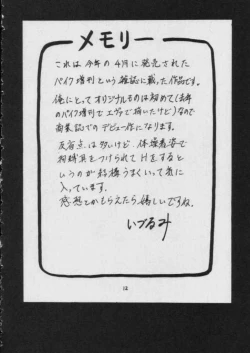 メモリー
これは今年の4月に発売された
パイク増刊という雑誌に載った作品です。
俺にとってオリジナルものは初めて(去年
のパイク増刊でエヴァで描いたけど)なので
商業誌でのデビュー作になります。
反省点は多いけど、体操着姿で
拘束具をつけられてHをすると
いうのが結構うまくいって気に
入っています。
感想とかもらえたら嬉しいですね。
いづるみ
12